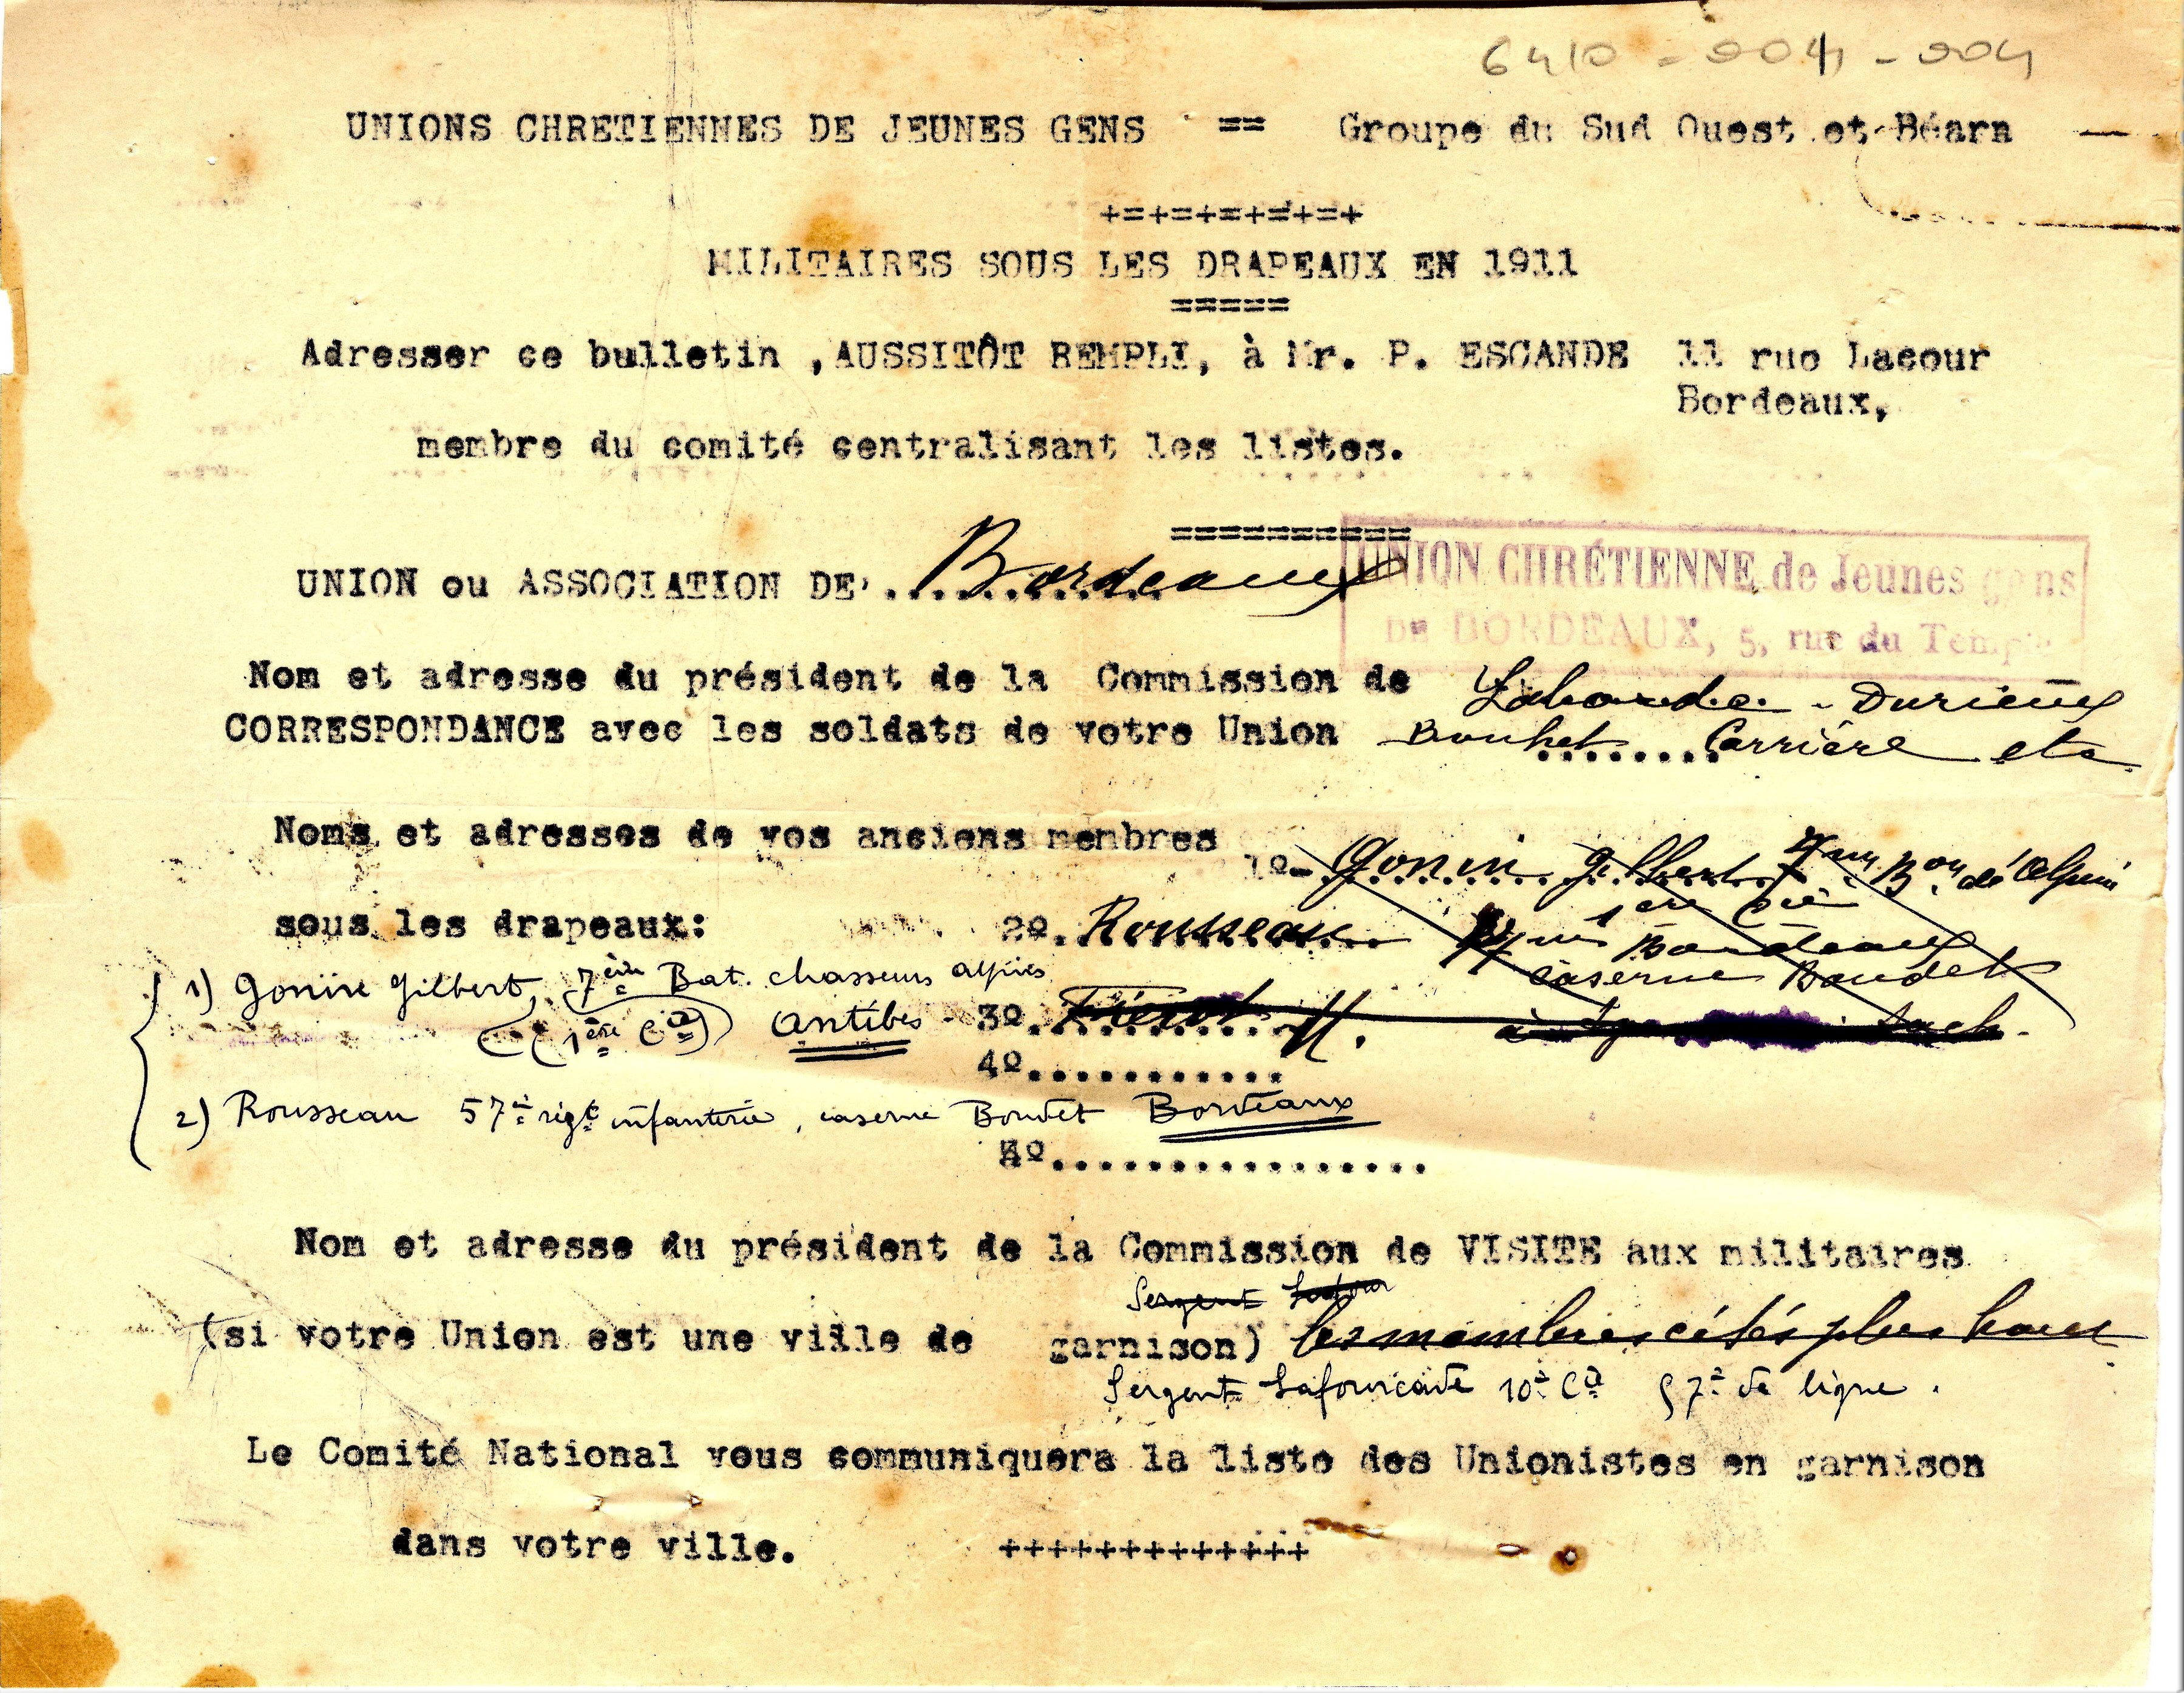 6410 - 004 - 004
UNIONS CHRETIENNES DE JEUNES GENS == Groupe du Sud Ouest et Béarn
+=+=+=+=+=+
MILITAIRES SOUS LES DRAPEAUX EN 1911
=====
Adresser ce bulletin ,AUSSITÔT REMPLI, à Mr. P. ESCANDE 11 rue Lacour
Bordeaux,
membre du comité centralisant les listes.
==========
UNION ou ASSOCIATION DE Bordeaux
UNION CHRÉTIENNE de Jeunes gens
DE BORDEAUX, 5, rue du Temple
Nom et adresse du président de la Commission de Laborde - Durieux
CORRESPONDANCE avec les soldats de votre Union Bouhet Carrière etc
Noms et adresses de vos anciens membres
1º- Gonin Gilbert 7me Bon de Alpin
1ère Cie
sous les drapeaux: 2º. Rousseau Bordeaux
caserne Boudet
1) Gonin Gilbert, 7ème Bat. chasseurs alpins
(1ère Cie) Antibes - 3º
4º............
2) Rousseau 57e régt infanterie, caserne Boudet Bordeaux
5º.................
Nom et adresse du président de la Commission de VISITE aux militaires
Sergent
(si votre Union est une ville de garnison) les membres cités plus haut
Sergent Lafourcade 10e Cie 57e de ligne.
Le Comité National vous communiquera la liste des Unionistes en garnison
dans votre ville. +++++++++++++